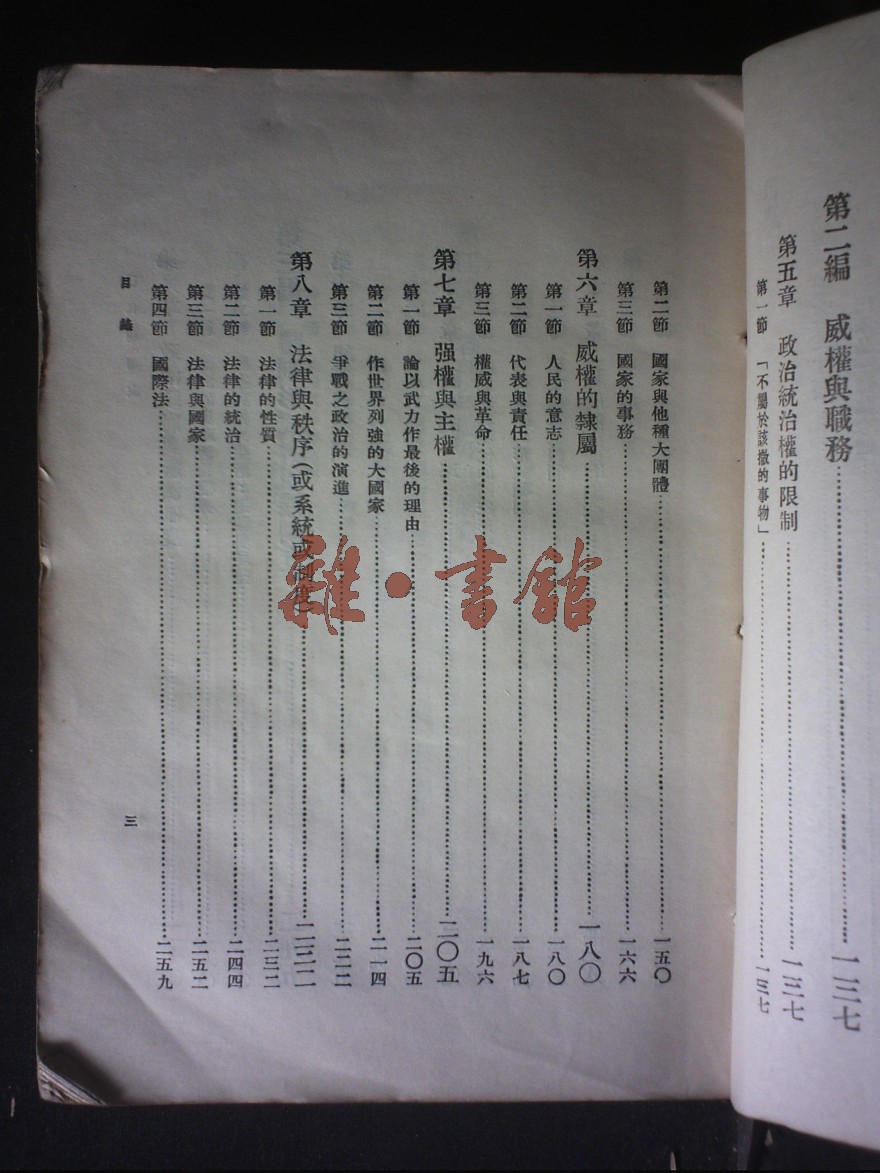 第二編　威權與職務……一三七
第五章　政治統治權的限制……一三七
第一節　「不屬於該撒的事物」……一三七
第二節　國家與他種大團體……一五〇
第三節　國家的事務……一六六
第六章　威權的隸屬……一八〇
第一節　人民的意志……一八〇
第二節　代表與責任……一八七
第三節　權威與革命……一九六
第七章　强權與主權……二〇五
第一節　論以武力作最後的理由……二〇五
第二節　作世界列強的大國家……二一四
第三節　爭戰之政治的演進……二二二
第八章　法律與秩序（或系統或制度）……二三二
第一節　法律的性質……二三二
第二節　法律的統治……二四四
第三節　法律與國家……二五二
第四節　國際法……二五九
目錄
三
雜·書館